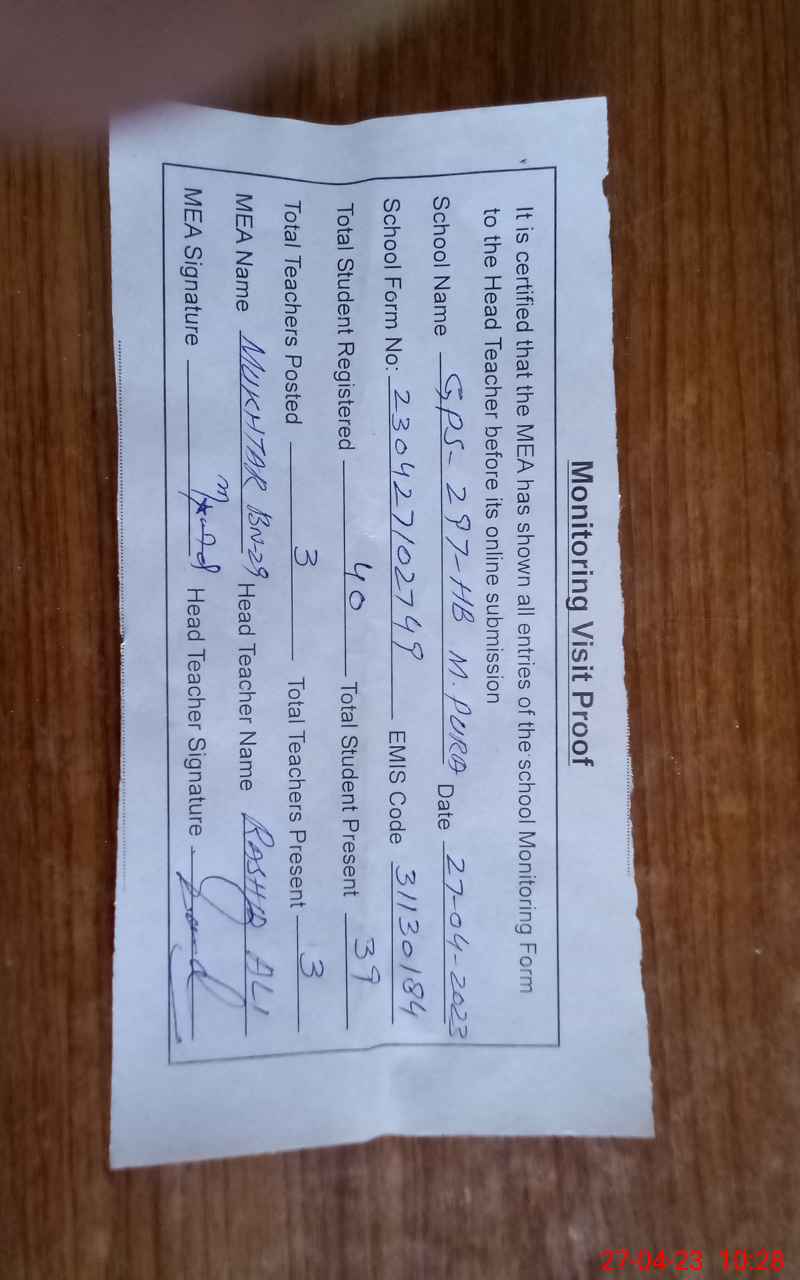 Monitoring Visit Proof
It is certified that the MEA has shown all entries of the school Monitoring Form
to the Head Teacher before its online submission
School Name GPS-297-HB M.PURA Date 27-04-2023
School Form No: 230427102749 EMIS Code 31130184
Total Student Registered 40 Total Student Present 39
Total Teachers Posted 3 Total Teachers Present 3
MEA Name MUKHTAR BN-29 Head Teacher Name RASHID ALI
MEA Signature Head Teacher Signature
27-04-23 10:28